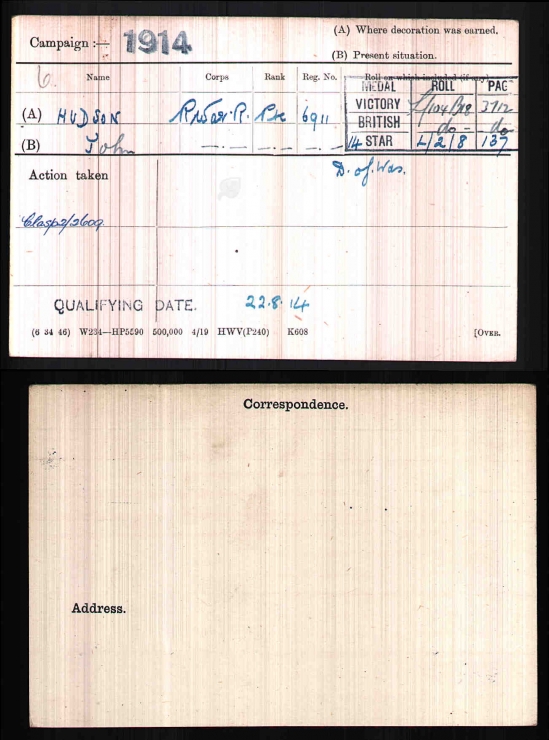 Campaign :— 1914
(A) Where decoration was earned.
(B) Present situation.
Name Corps Rank Reg. No. Roll on which included (if any)
MEDAL ROLL PAGE
(A) HUDSON R. War. R. Pte 6911
VICTORY L/104 B18 3712
BRITISH - do - do
(B) John —.— —.— —.—
14 STAR L/2/8 137
Action taken
D. of W.
Clasp 2/2609.
QUALIFYING DATE. 22.8.14
(6 34 46) W234—HP5590 500,000 4/19 HWV(P240) K608 [OVER.
Correspondence.
Address.